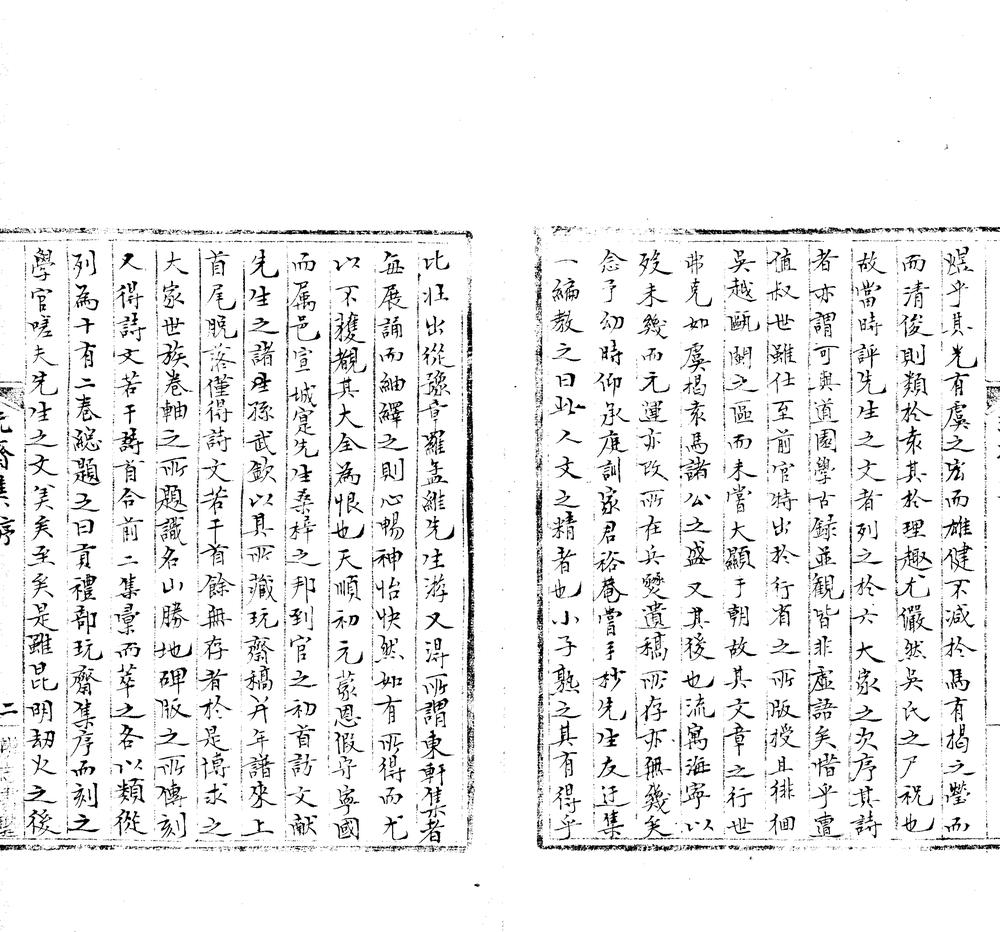 煜乎其光有虞之宏而雄健不减於馬有揭之瑩而
而清俊則類於袁其於理趣尤儼然吳氏之尸祝也
故當時評先生之文者列之於六大家之次序其詩
者亦謂可與道園學古録並觀皆非虛語矣惜乎遭
值叔世雖仕至前官特出於行省之所版授且徘徊
吳越甌閩之區而未嘗大顯于朝故其文章之行世
弗克如虞揭袁馬諸公之盛又其後也流寓海寧以
歿未幾而元運亦改所在兵燹遺稿所存亦無幾矣
念予幼時仰承庭訓家君裕菴嘗手抄先生友迂集
一編教之曰此人文之精者也小子熟之其有得乎
比壯出從豫章羅孟維先生游又得所謂東軒集者
每展誦而紬繹之則心暢神怡快然如有所得而尤
以不獲觀其大全為恨也天順初元蒙恩假守寧國
而属邑宣城寔先生桑梓之邦到官之初首訪文献
先生之諸孫武欽以其所藏玩齋稿并年譜來上
首尾脱落僅得詩文若干首餘無存者於是博求之
大家世族卷軸之所題識名山勝地碑版之所傳刻
又得詩文若干首合前二集彙而萃之各以類從
列為十有二卷緫題之曰貢禮部玩齋集序而刻之
學官嗟夫先生之文美矣至矣是雖昆明劫火之後
玩齋集序
二